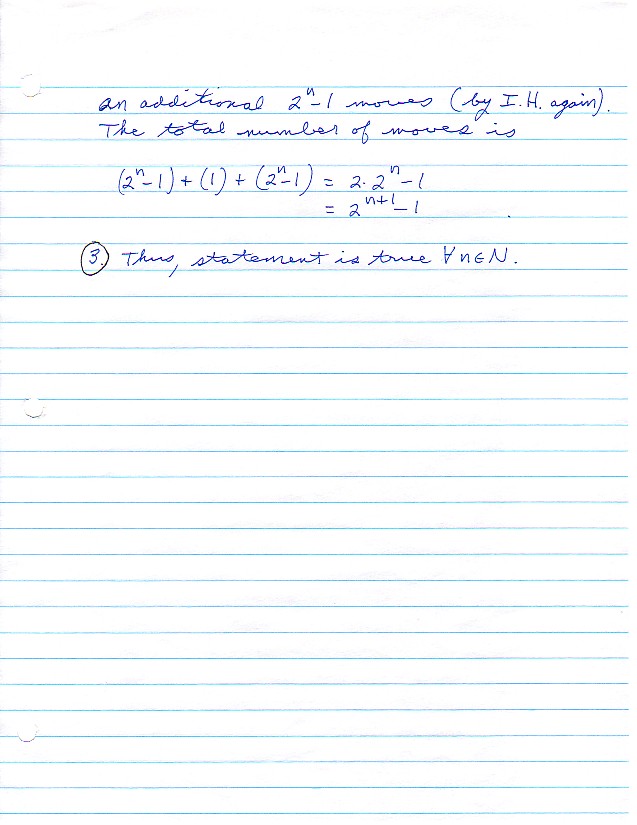 an additional 2ⁿ-1 moves (by I.H. again).
The total number of moves is
(2ⁿ-1) + (1) + (2ⁿ-1) = 2·2ⁿ-1
= 2ⁿ⁺¹-1
3. Thus, statement is true ∀n∈N.